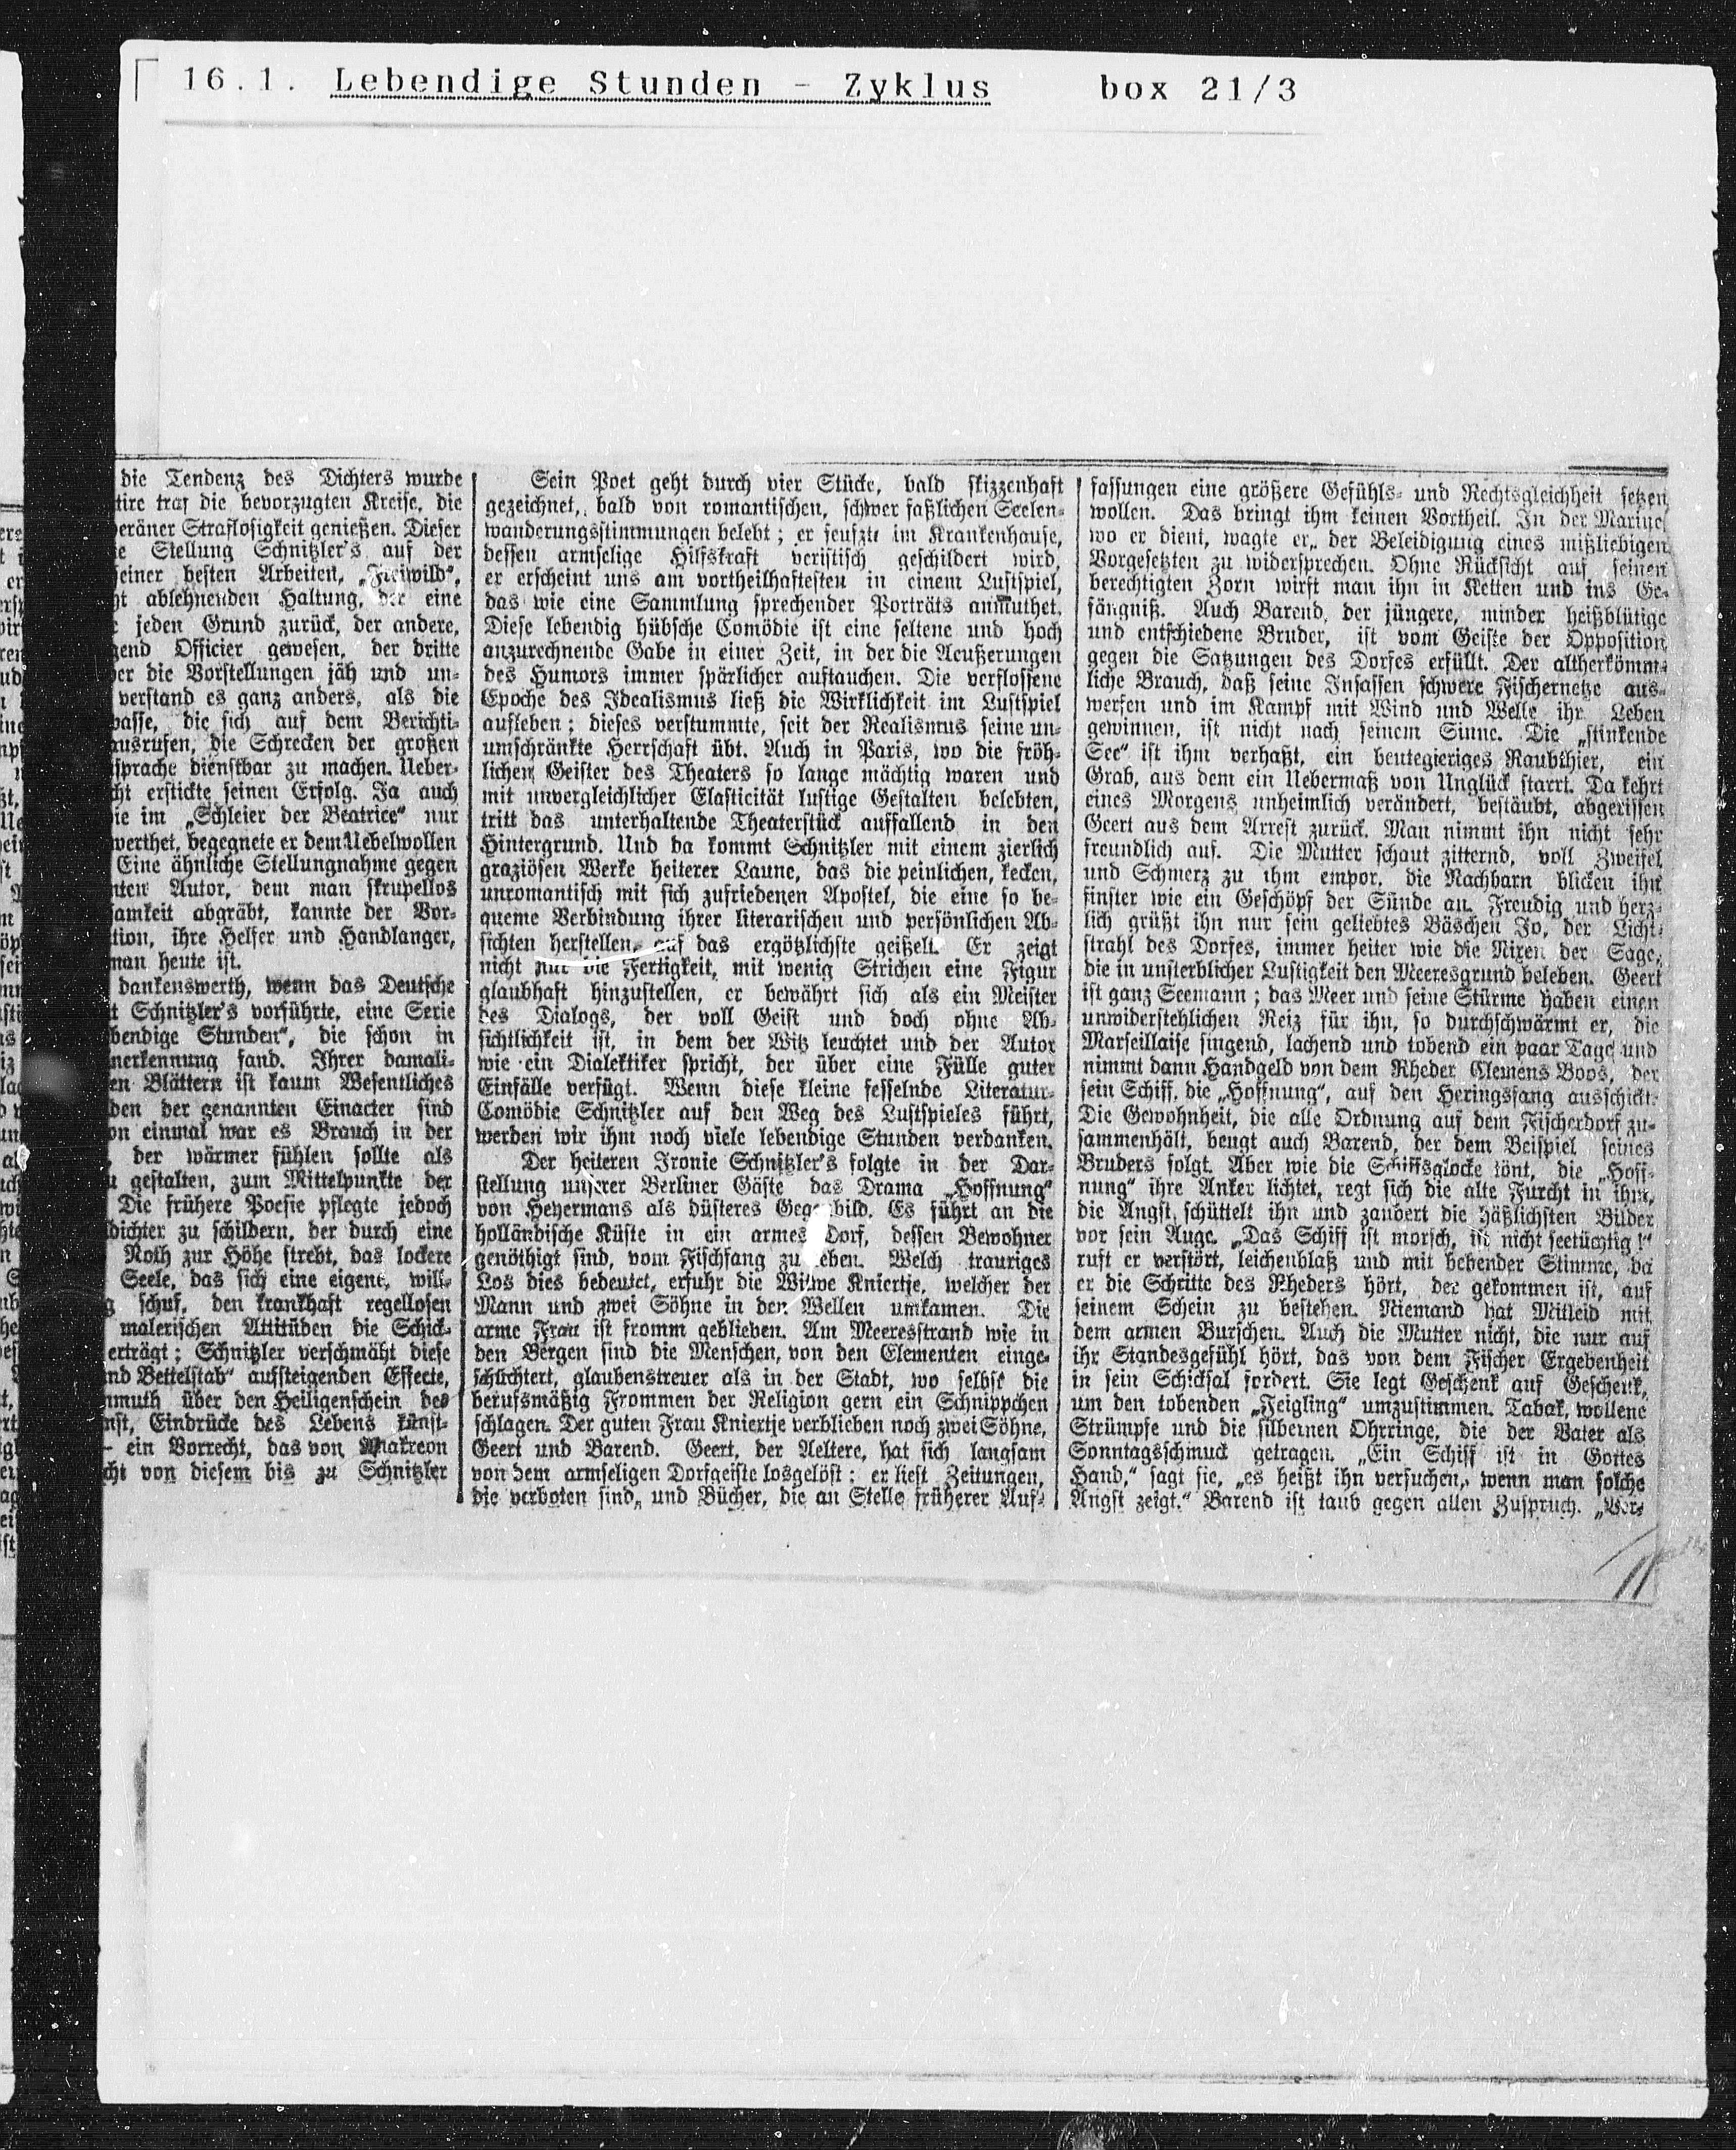 16.1. Lebendige Stunden - Zyklus box 21/3
die Tendenz des Dichters wurde
die bevorzugten Kreise, die
Straflosigkeit genießen. Dieser
Stellung Schnitzler's auf der
seiner besten Arbeiten, „Freiwild",
ablehnenden Haltung, der eine
jeden Grund zurück, der andere,
Officier gewesen, der dritte
die Vorstellungen jäh und un-
verstand es ganz anders, als die
die sich auf dem Berichti-
ausrufen, die Schrecken der großen
dienstbar zu machen. Ueber-
erstickte seinen Erfolg. Ja auch
im „Schleier der Beatrice" nur
begegnete er dem Uebelwollen
Eine ähnliche Stellungnahme gegen
Autor, dem man skrupellos
abgräbt, kannte der Vor-
ihre Helfer und Handlanger,
man heute ist.
dankenswerth, wenn das Deutsche
Schnitzler's vorführte, eine Serie
Stunden", die schon in
fand. Ihrer damali-
Blättern ist kaum Wesentliches
der genannten Einacter sind
einmal war es Brauch in der
der wärmer fühlen sollte als
gestalten, zum Mittelpunkte der
Die frühere Poesie pflegte jedoch
zu schildern, der durch eine
Noth zur Höhe strebt, das lockere
Seele, das sich eine eigene, will-
schuf, den krankhaft regellosen
malerischen Attitüden die Schick-
erträgt; Schnitzler verschmäht diese
Bettelstab" aufsteigenden Effecte,
über den Heiligenschein des
Eindrücke des Lebens künst-
— ein Vorrecht, das von Anakreon
von diesem bis zu Schnitzler
Sein Poet geht durch vier Stücke, bald skizzenhaft
gezeichnet, bald von romantischen, schwer faßlichen Seelen-
wanderungsstimmungen belebt; er seufzte im Krankenhause,
dessen armselige Hilfskraft veristisch geschildert wird,
er erscheint uns am vortheilhaftesten in einem Lustspiel,
das wie eine Sammlung sprechender Porträts anmuthet.
Diese lebendig hübsche Comödie ist eine seltene und hoch
anzurechnende Gabe in einer Zeit, in der die Aeußerungen
des Humors immer spärlicher auftauchen. Die verflossene
Epoche des Idealismus ließ die Wirklichkeit im Lustspiel
aufleben; dieses verstummte, seit der Realismus seine un-
umschränkte Herrschaft übt. Auch in Paris, wo die fröh-
lichen Geister des Theaters so lange mächtig waren und
mit unvergleichlicher Elasticität lustige Gestalten belebten,
tritt das unterhaltende Theaterstück auffallend in den
Hintergrund. Und da kommt Schnitzler mit einem zierlich
graziösen Werke heiterer Laune, das die peinlichen, kecken,
unromantisch mit sich zufriedenen Apostel, die eine so be-
queme Verbindung ihrer literarischen und persönlichen Ab-
sichten herstellen, auf das ergötzlichste geißelt. Er zeigt
nicht nur die Fertigkeit, mit wenig Strichen eine Figur
glaubhaft hinzustellen, er bewährt sich als ein Meister
des Dialogs, der voll Geist und doch ohne Ab-
sichtlichkeit ist, in dem der Witz leuchtet und der Autor
wie ein Dialektiker spricht, der über eine Fülle guter
Einfälle verfügt. Wenn diese kleine fesselnde Literatur-
Comödie Schnitzler auf den Weg des Lustspieles führt,
werden wir ihm noch viele lebendige Stunden verdanken.
Der heiteren Ironie Schnitzler's folgte in der Dar-
stellung unserer Berliner Gäste das Drama „Hoffnung"
von Heyermans als düsteres Gegenbild. Es führt an die
holländische Küste in ein armes Dorf, dessen Bewohner
genöthigt sind, vom Fischfang zu leben. Welch trauriges
Los dies bedeutet, erfuhr die Witwe Kniertje, welcher der
Mann und zwei Söhne in den Wellen umkamen. Die
arme Frau ist fromm geblieben. Am Meeresstrand wie in
den Bergen sind die Menschen, von den Elementen einge-
schüchtert, glaubenstreuer als in der Stadt, wo selbst die
berufsmäßig Frommen der Religion gern ein Schnippchen
schlagen. Der guten Frau Kniertje verblieben noch zwei Söhne,
Geert und Barend. Geert, der Aeltere, hat sich langsam
von dem armseligen Dorfgeiste losgelöst: er liest Zeitungen,
die verboten sind, und Bücher, die an Stelle früherer Auf-
fassungen eine größere Gefühls- und Rechtsgleichheit setzen
wollen. Das bringt ihm keinen Vortheil. In der Marine,
wo er dient, wagte er, der Beleidigung eines mißliebigen
Vorgesetzten zu widersprechen. Ohne Rücksicht auf seinen
berechtigten Zorn wirft man ihn in Ketten und ins Ge-
fängniß. Auch Barend, der jüngere, minder heißblütige
und entschiedene Bruder, ist vom Geiste der Opposition
gegen die Satzungen des Dorfes erfüllt. Der altherkömm-
liche Brauch, daß seine Insassen schwere Fischernetze aus-
werfen und im Kampf mit Wind und Welle ihr Leben
gewinnen, ist nicht nach seinem Sinne. Die „stinkende
See" ist ihm verhaßt, ein beutegieriges Raubthier, ein
Grab, aus dem ein Uebermaß von Unglück starrt. Da kehrt
eines Morgens unheimlich verändert, bestäubt, abgerissen
Geert aus dem Arrest zurück. Man nimmt ihn nicht sehr
freundlich auf. Die Mutter schaut zitternd, voll Zweifel
und Schmerz zu ihm empor, die Nachbarn blicken ihn
finster wie ein Geschöpf der Sünde an. Freudig und herz-
lich grüßt ihn nur sein geliebtes Bäschen Jo, der Licht-
strahl des Dorfes, immer heiter wie die Nixen der Sage,
die in unsterblicher Lustigkeit den Meeresgrund beleben. Geert
ist ganz Seemann; das Meer und seine Stürme haben einen
unwiderstehlichen Reiz für ihn, so durchschwärmt er, die
Marseillaise singend, lachend und tobend ein paar Tage und
nimmt dann Handgeld von dem Rheder Clemens Boos, der
sein Schiff, die „Hoffnung", auf den Heringsfang ausschickt.
Die Gewohnheit, die alle Ordnung auf dem Fischerdorf zu-
sammenhält, beugt auch Barend, der dem Beispiel seines
Bruders folgt. Aber wie die Schiffsglocke tönt, die „Hoff-
nung" ihre Anker lichtet, regt sich die alte Furcht in ihm,
die Angst schüttelt ihn und zaubert die häßlichsten Bilder
vor sein Auge. „Das Schiff ist morsch, ist nicht seetüchtig!"
ruft er verstört, leichenblaß und mit bebender Stimme, da
er die Schritte des Rheders hört, der gekommen ist, auf
seinem Schein zu bestehen. Niemand hat Mitleid mit
dem armen Burschen. Auch die Mutter nicht, die nur auf
ihr Standesgefühl hört, das von dem Fischer Ergebenheit
in sein Schicksal fordert. Sie legt Geschenk auf Geschenk,
um den tobenden „Feigling" umzustimmen. Tabak, wollene
Strümpfe und die silbernen Ohrringe, die der Vater als
Sonntagsschmuck getragen. „Ein Schiff ist in Gottes
Hand," sagt sie, „es heißt ihn versuchen, wenn man solche
Angst zeigt." Barend ist taub gegen allen Zuspruch. „Ver-